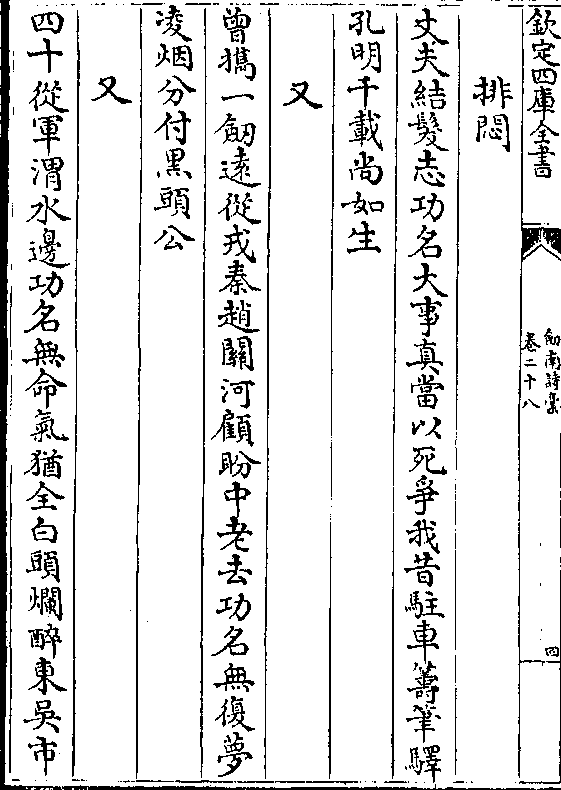 欽定四庫全書
劎南詩藳
卷二十八
四
排悶
丈夫結髮志功名大事真當以死爭我昔駐車籌筆驛
孔明千載尚如生
又
曾攜一劒遠從戎秦趙關河顧盼中老去功名無復夢
凌烟分付黑頭公
又
四十從軍渭水邊功名無命氣猶全白頭爛醉東吳市